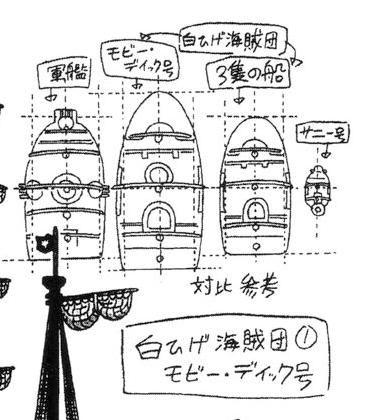 白ひげ海賊団
モビー・
ディック号
軍艦
3隻の船
サニー号
対比 参考
白ひげ海賊団①
モビー・ディック号